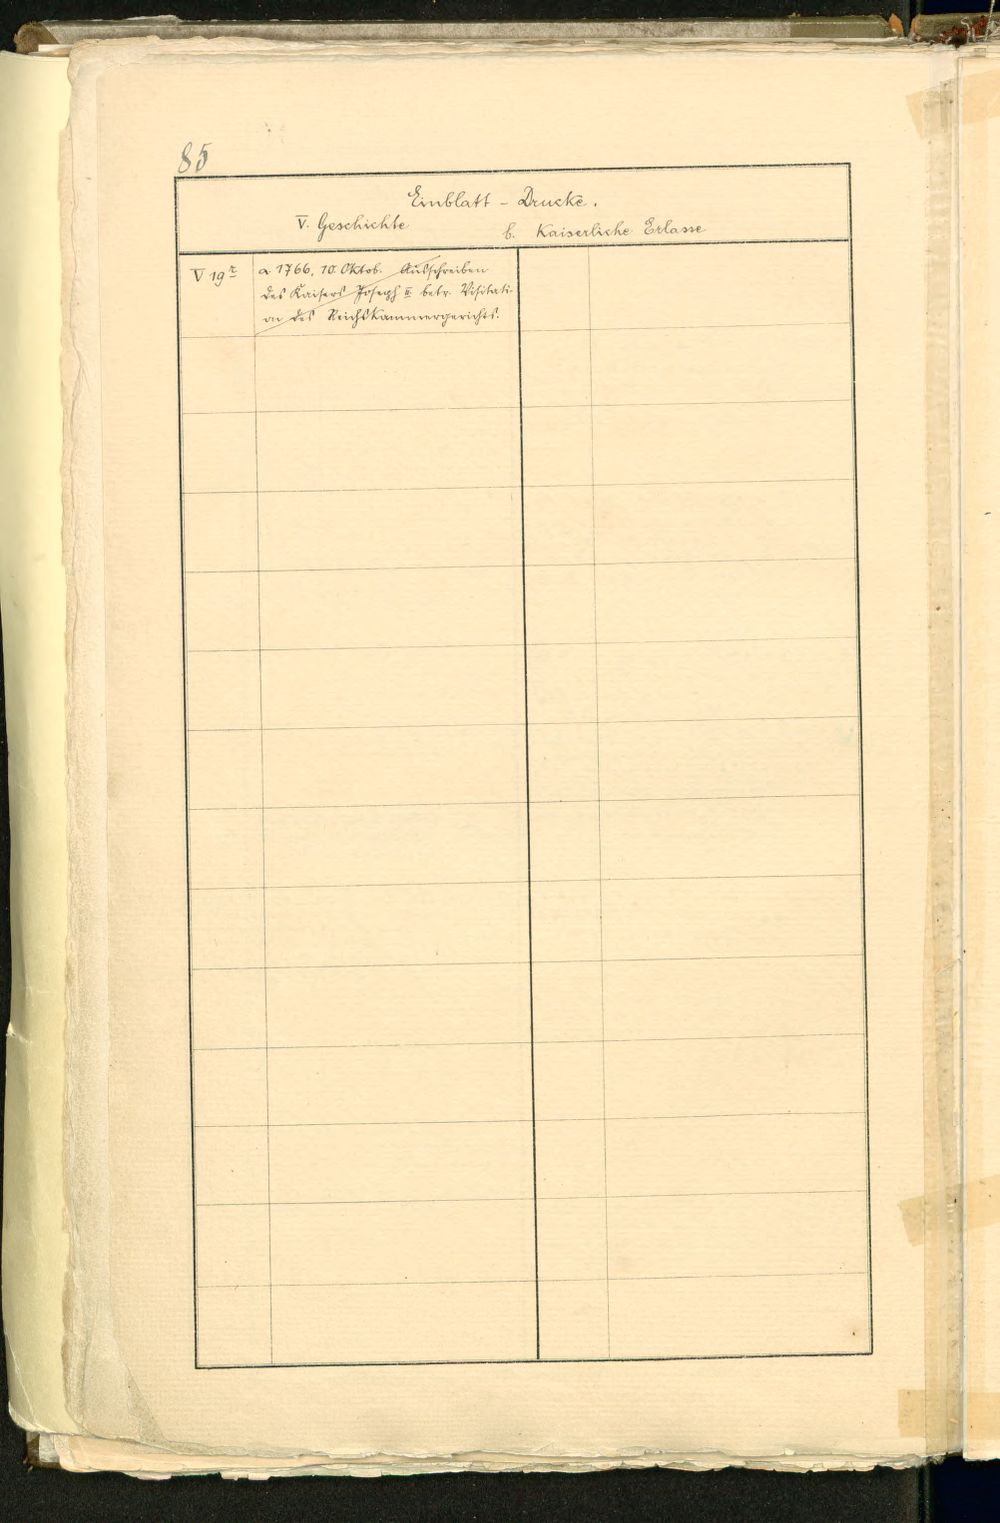 85
Einblatt - Drucke.
V. Geschichte b. Kaiserliche Erlasse
V 19r a 1766, 10. Oktob. Ausschreiben
des Kaisers Joseph II. betr. Visitati-
on des Reichskammergerichts.